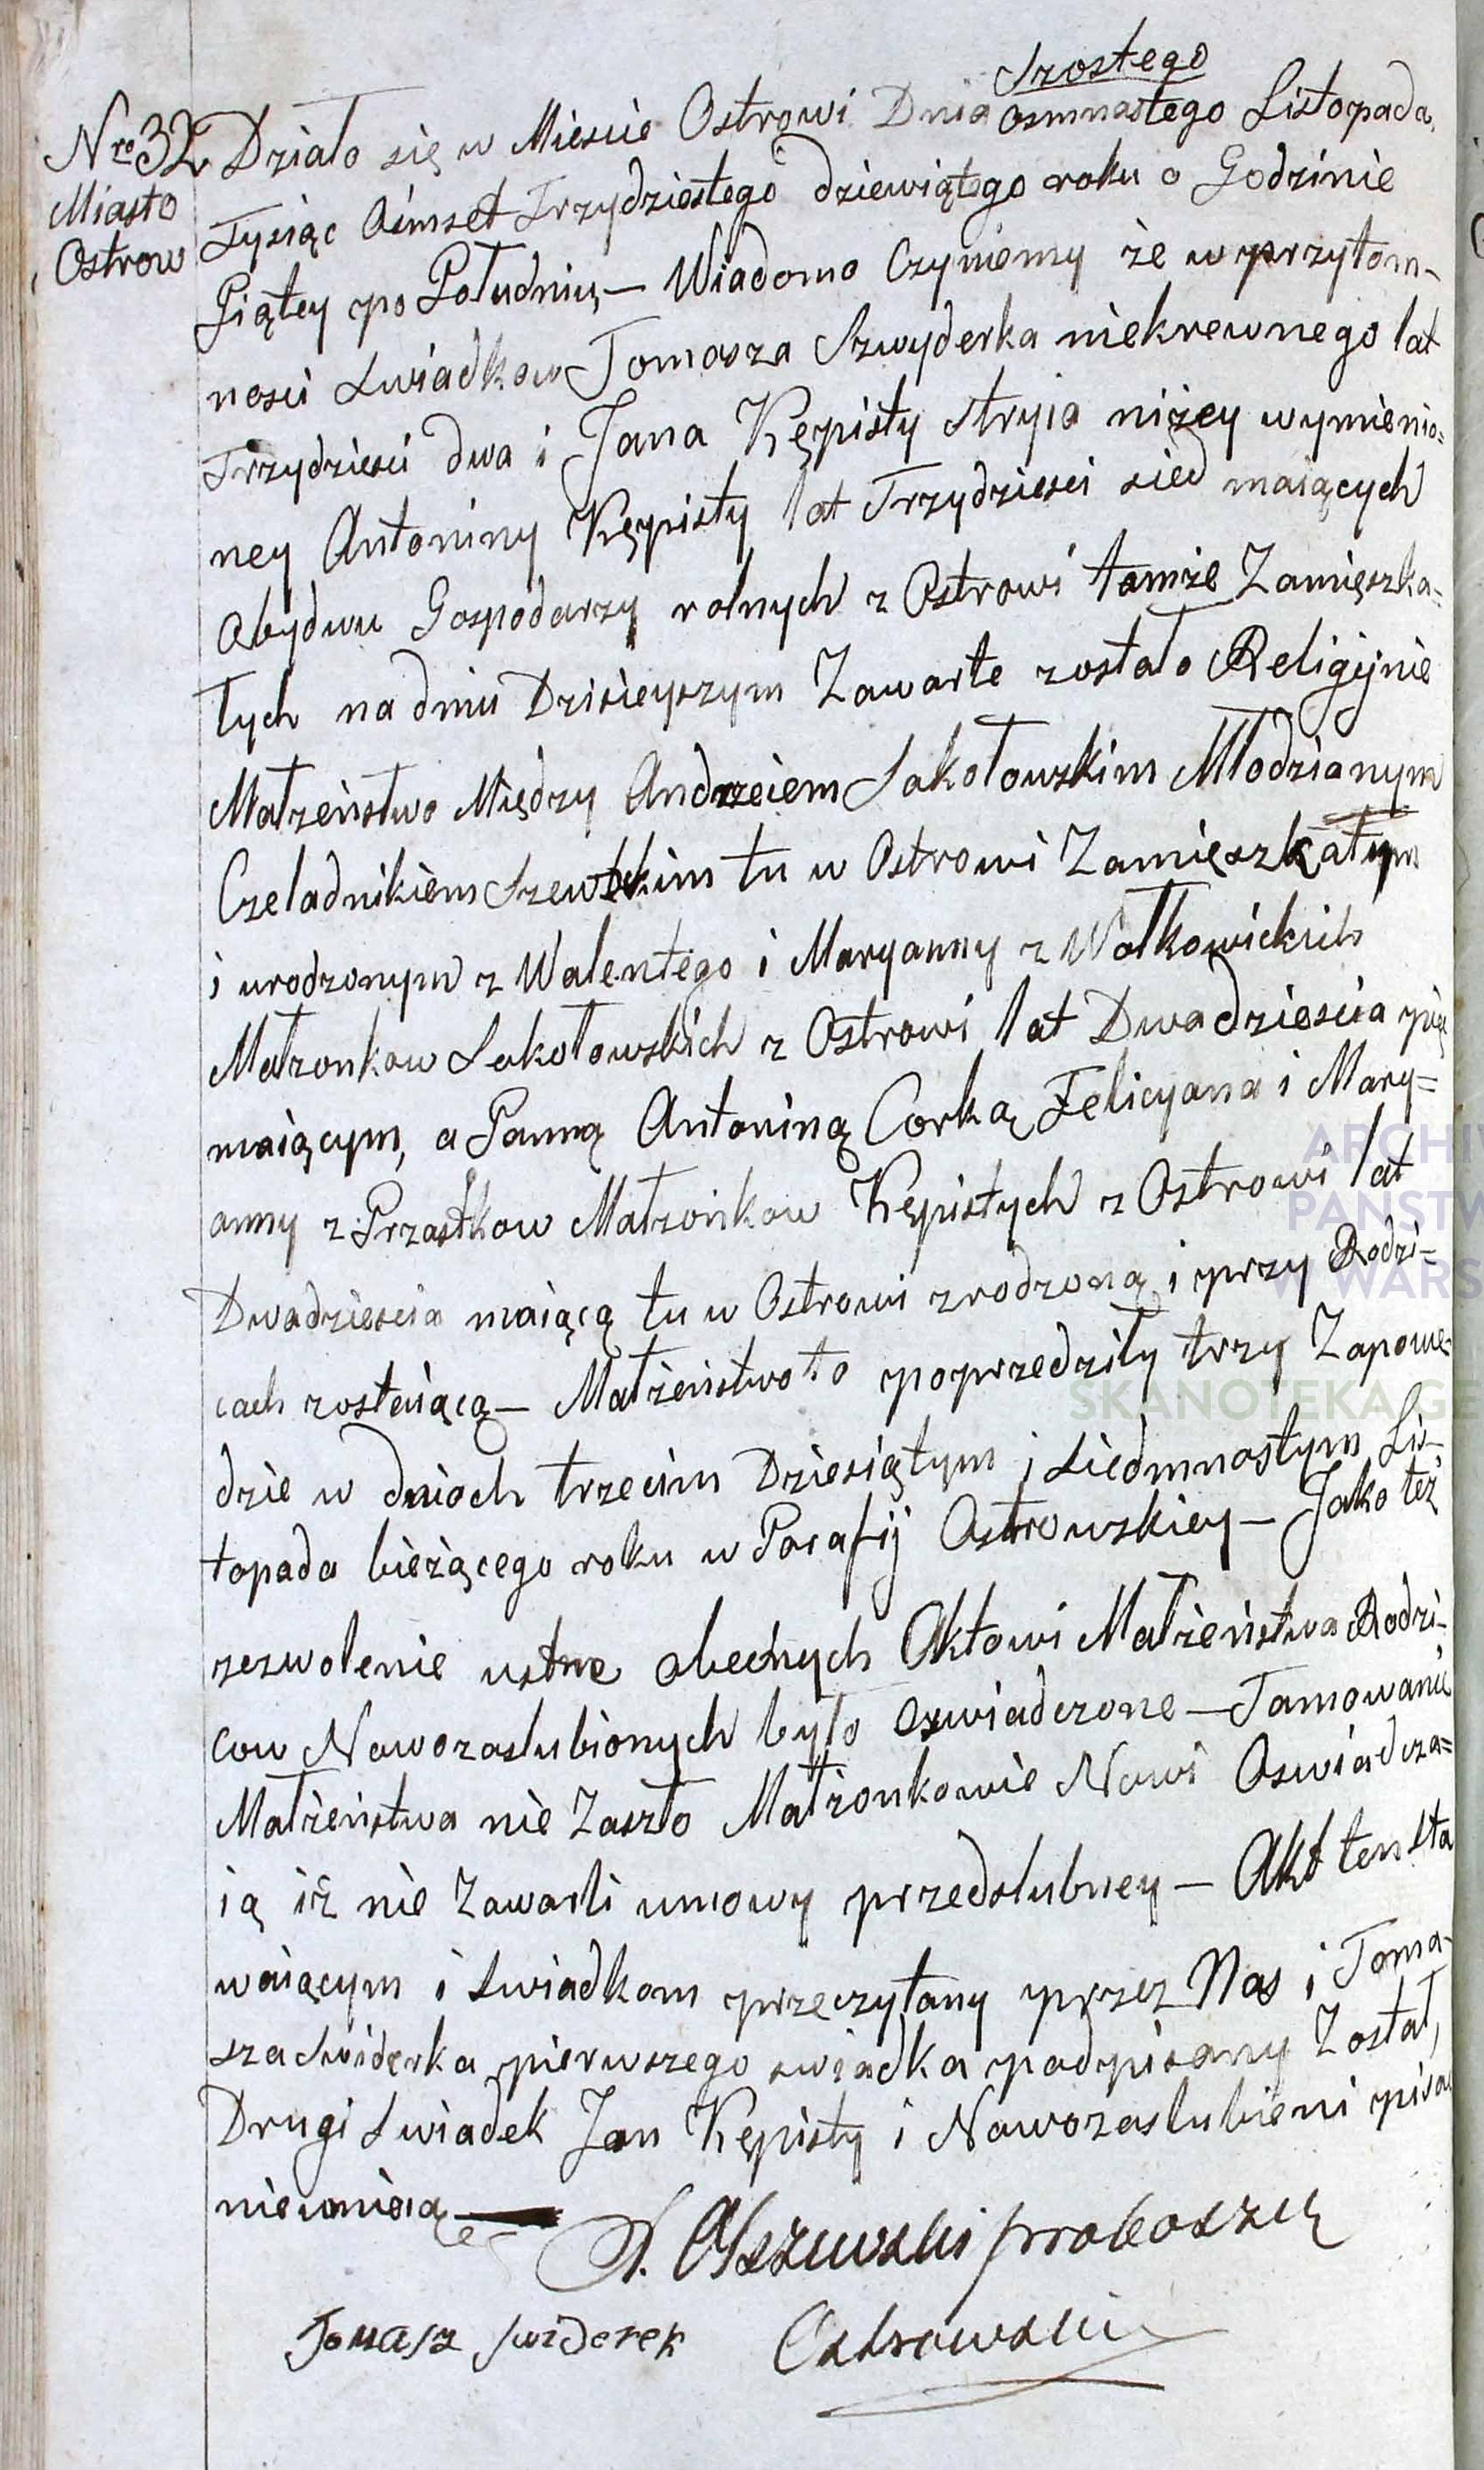 Szostego
Nro 32 Działo się w Miescie Ostrowi Dnia Osmnastego Listopada
Miasto
Ostrow
Tysiąc Osmset Trzydziestego dziewiątego roku o Godzinie
Piątey po Południu — Wiadomo Czyniemy że w przytom-
nosci swiadkow Tomasza Szwyderka niekrewnego lat
Trzydziesci dwa i Jana Kępisty stryia niżey wymienio=
ney Antoniny Kępisty lat Trzydziesci sied maiących
Obydwu Gospodarzy rolnych z Ostrowi tamże Zamięszka=
łych na dniu Dzisieyszym Zawarte zostało Religijnie
Małżeństwo Między Andrzeiem Sokołowskim Młodzianym
Czeladnikiem Szewskim tu w Ostrowi Zamięszkałym
i urodzonym z Walentego i Maryanny z Wołkowickich
Małżonkow Sokołowskich z Ostrowi lat Dwadziescia pięc
maiącym, a Panną Antoniną Corką Felicyana i Mary=
anny z Przastkow Małżonkow Kępistych z Ostrowi lat
Dwadziescia maiącą tu w Ostrowi zrodzoną i przy Rodzi-
cach zostaiącą — Małżeństwo to poprzedziły trzy Zapowie-
dzie w dniach trzecim Dziesiątym i siedmnastym Lis-
topada bieżącego roku w Parafij Ostrowskiey — Jako też
zezwolenie ustne obecnych Aktowi Małżeństwa Rodzi-
cow Nowozaslubionych było oswiadczone — Tamowanie
Małżeństwa nie Zaszło Małżonkowie Nowi Oswiadcza=
ią iż nie Zawarli umowy przedslubney — Akt ten sta
waiącym i swiadkom przeczytany przez Nas i Toma-
sza Swiderka pierwszego swiadka podpisany Został,
Drugi swiadek Jan Kępisty i Nowozaslubieni pisac
nieumieią
Olszewski proboszcz
Tomasz swiderek Ostrowski
ARCHIW
PAŃSTW
W WARS
SKANOTEKA GE